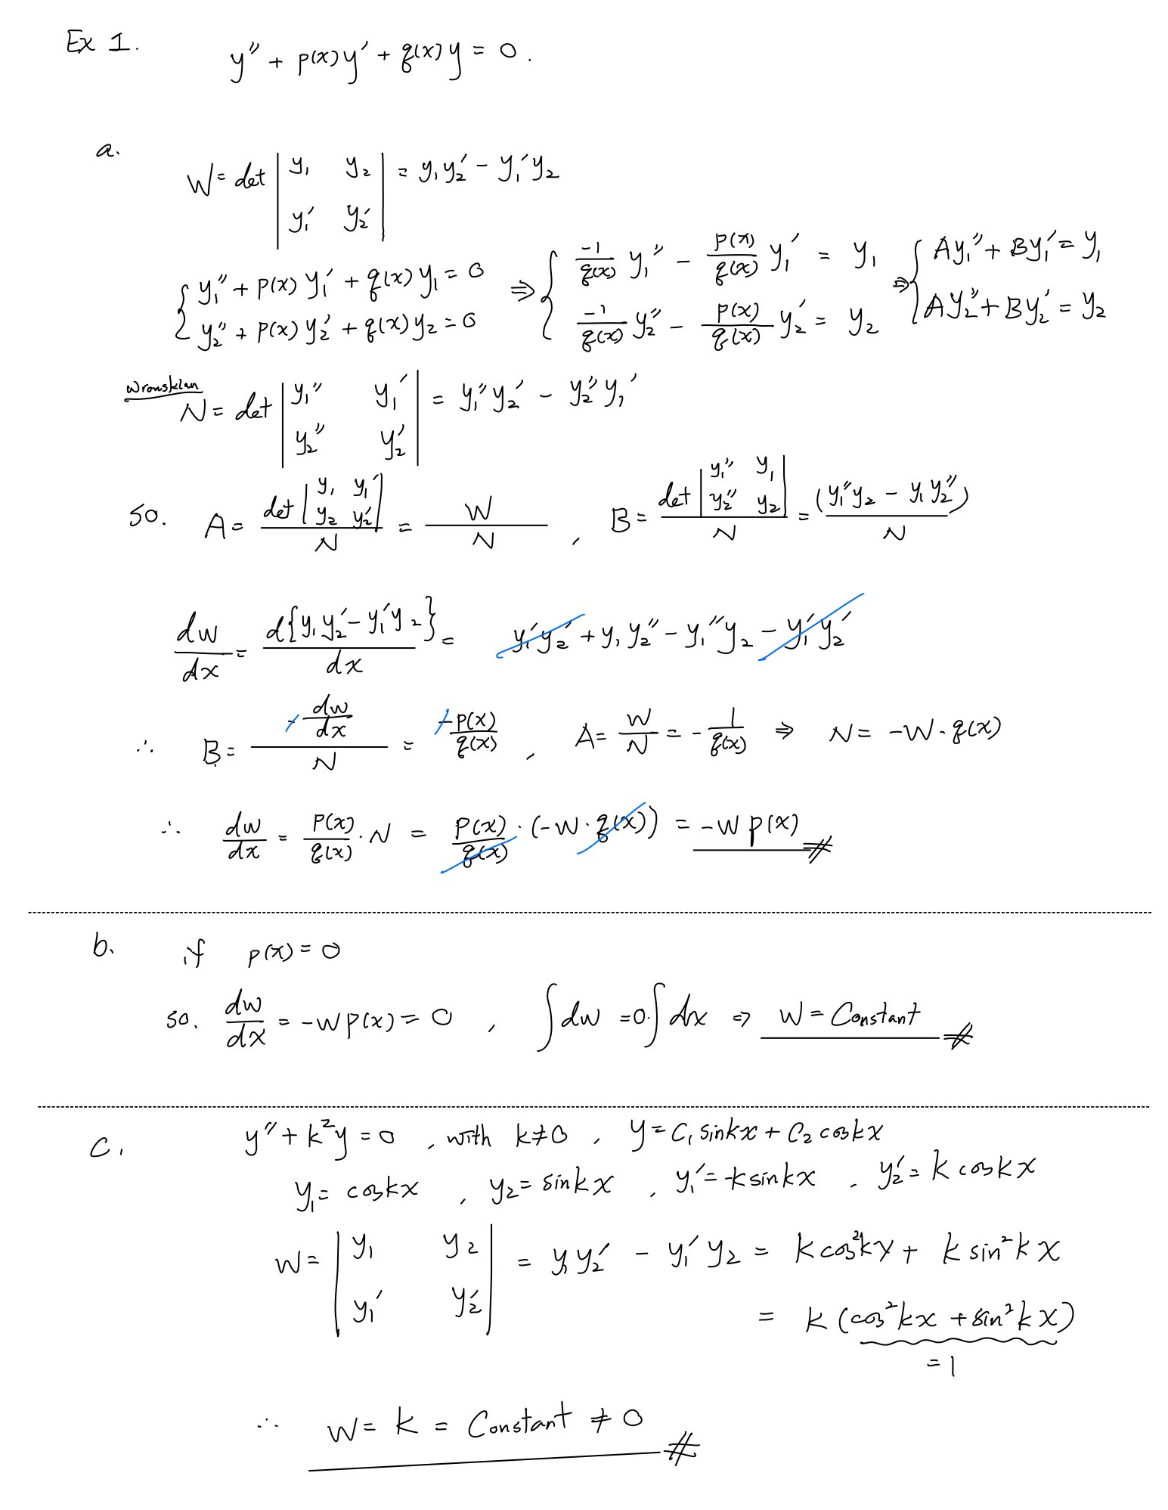 Ex 1. y'' + p(x)y' + q(x)y = 0.
a.
W = det | y₁ y₂ ; y₁' y₂' | = y₁y₂' - y₁'y₂
{ y₁'' + p(x)y₁' + q(x)y₁ = 0 ; y₂'' + p(x)y₂' + q(x)y₂ = 0 ⇒ { -1/q(x) y₁'' - p(x)/q(x) y₁' = y₁ ; -1/q(x) y₂'' - p(x)/q(x) y₂' = y₂ ⇒ { Ay₁'' + By₁' = y₁ ; Ay₂'' + By₂' = y₂
Wronskian
N = det | y₁'' y₁' ; y₂'' y₂' | = y₁''y₂' - y₂''y₁'
so. A = det | y₁ y₁' ; y₂ y₂' | / N = W/N , B = det | y₁'' y₁ ; y₂'' y₂ | / N = (y₁''y₂ - y₁y₂'') / N
dw/dx = d{y₁y₂' - y₁'y₂}/dx = y₁'y₂' + y₁y₂'' - y₁''y₂ - y₁'y₂'
∴ B = (-dw/dx)/N = -p(x)/q(x) , A = W/N = -1/q(x) ⇒ N = -W·q(x)
∴ dw/dx = p(x)/q(x) · N = p(x)/q(x) · (-W·q(x)) = -W p(x) #
b. if p(x) = 0
so. dw/dx = -W p(x) = 0 , ∫dw = 0·∫dx ⇒ W = Constant #
c. y'' + k²y = 0 , with k≠0 , y = C₁ sinkx + C₂ coskx
y₁ = coskx , y₂ = sinkx , y₁' = -ksinkx , y₂' = k coskx
W = | y₁ y₂ ; y₁' y₂' | = y₁y₂' - y₁'y₂ = k cos²kx + k sin²kx
= k (cos²kx + sin²kx)
= 1
∴ W = k = Constant ≠ 0 #